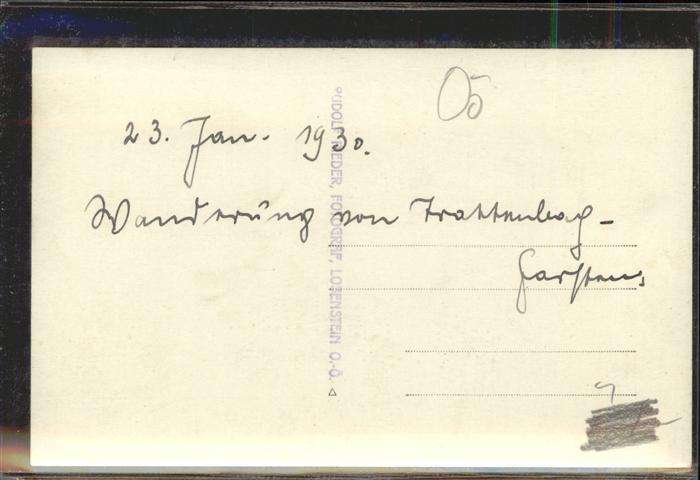 OÖ
23. Jan. 1930.
Wanderung von Trattenbach -
Garsten.
RUDOLF RIEDER, FOTOGRAF, LOSENSTEIN O.-Ö.